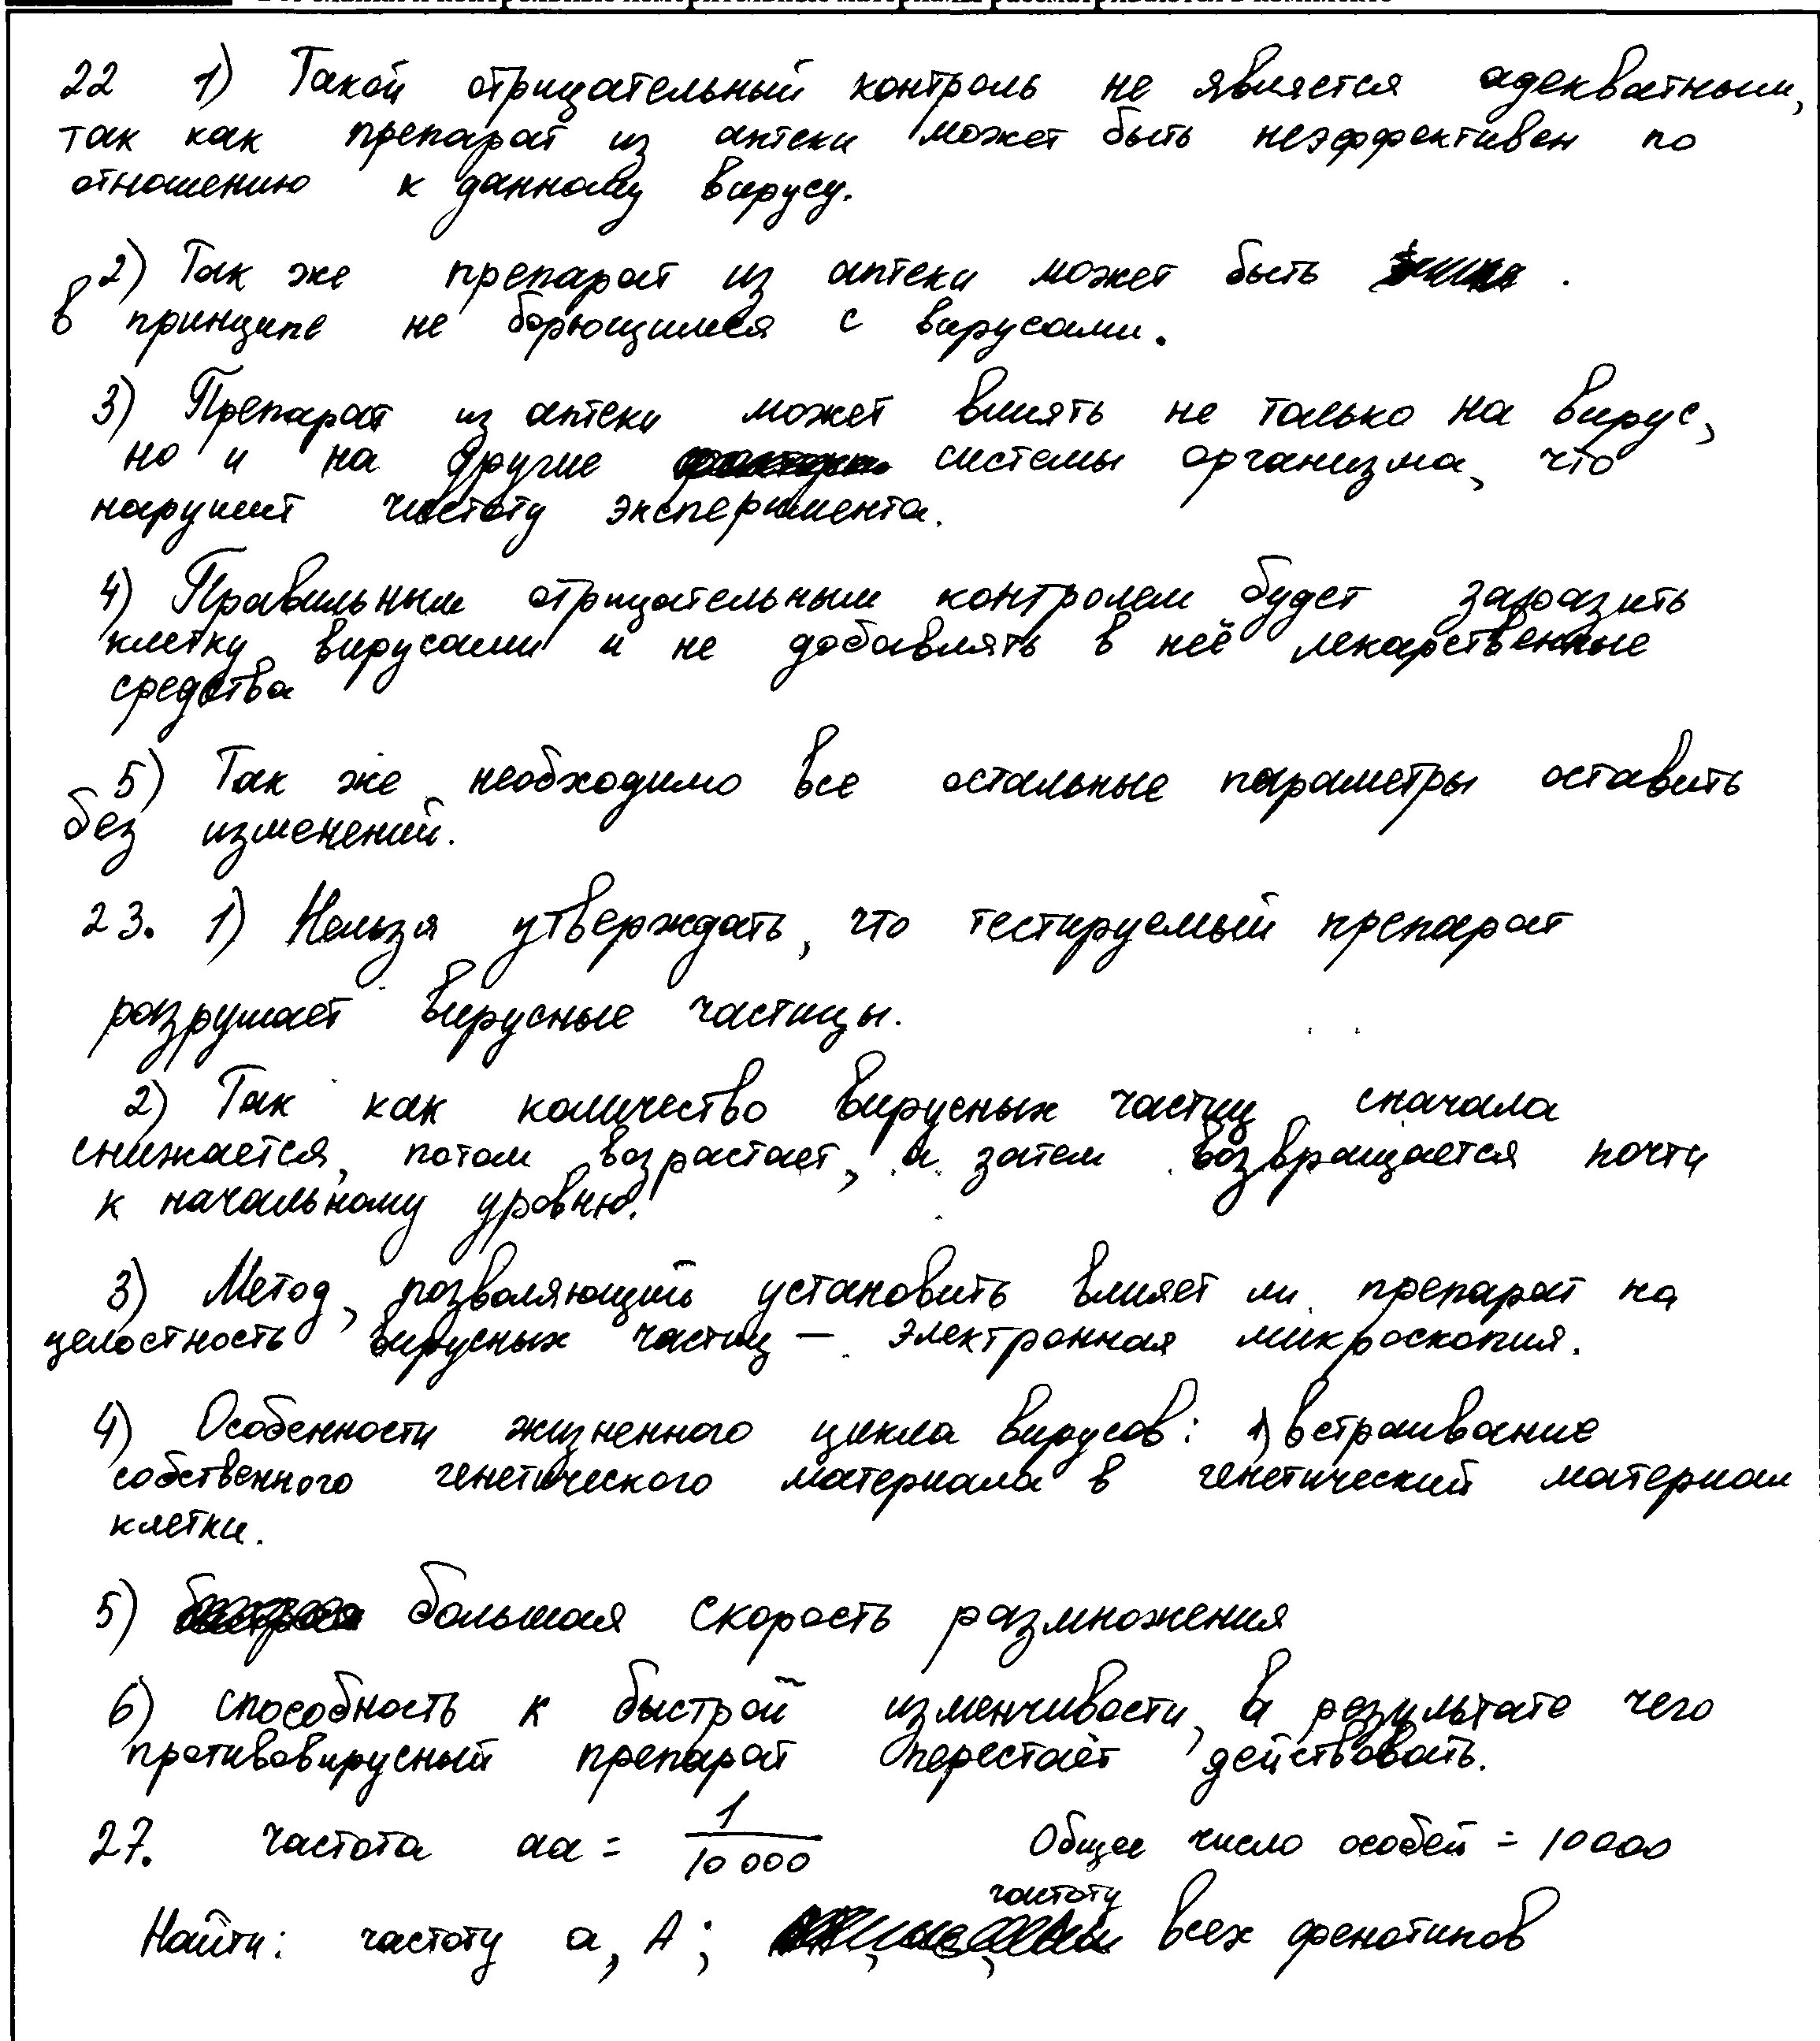 22 1) Такой отрицательный контроль не является адекватным,
так как препарат из аптеки может быть неэффективен по
отношению к данному вирусу.
2) Так же препарат из аптеки может быть
в принципе не борющимся с вирусами.
3) Препарат из аптеки может влиять не только на вирус,
но и на другие системы организма, что
нарушит чистоту эксперимента.
4) Правильным отрицательным контролем будет заразить
клетку вирусами и не добавлять в неё лекарственные
средства
5) Так же необходимо все остальные параметры оставить
без изменений.
23. 1) Нельзя утверждать, что тестируемый препарат
разрушает вирусные частицы.
2) Так как количество вирусных частиц сначала
снижается, потом возрастает, а затем возвращается почти
к начальному уровню.
3) Метод, позволяющий установить влияет ли препарат на
целостность вирусных частиц — электронная микроскопия.
4) Особенности жизненного цикла вирусов: 1) встраивание
собственного генетического материала в генетический материал
клетки.
5) большая скорость размножения
6) способность к быстрой изменчивости, в результате чего
противовирусный препарат перестаёт действовать.
27. частота aa = 1/10 000 Общее число особей = 10000
Найти: частоту a, A; частоту всех фенотипов